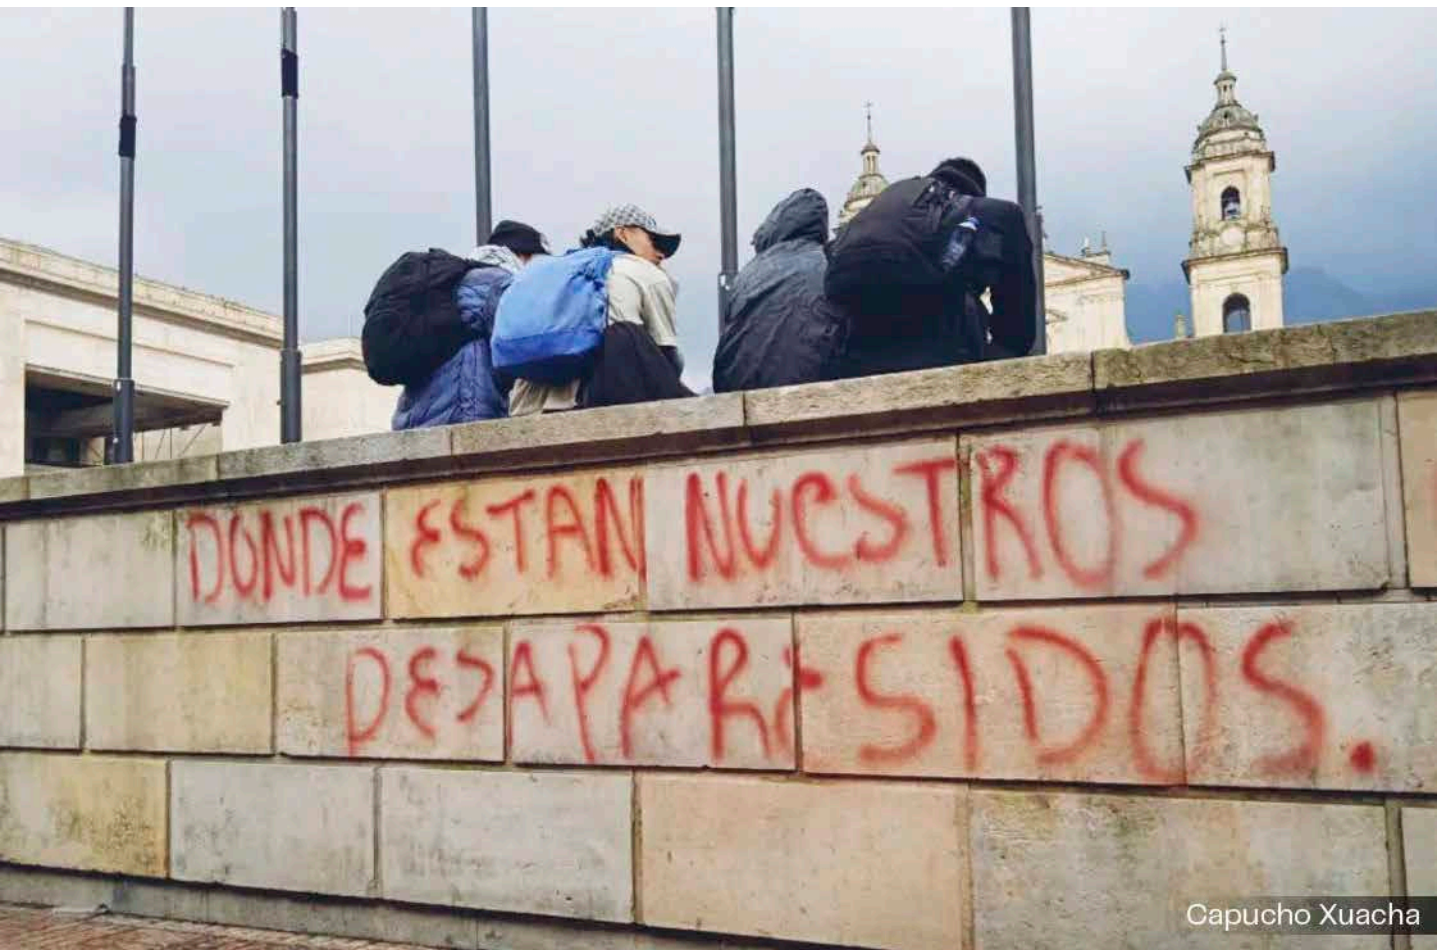 DONDE ESTAN NUESTROS
DESAPARESIDOS.
Capucho Xuacha